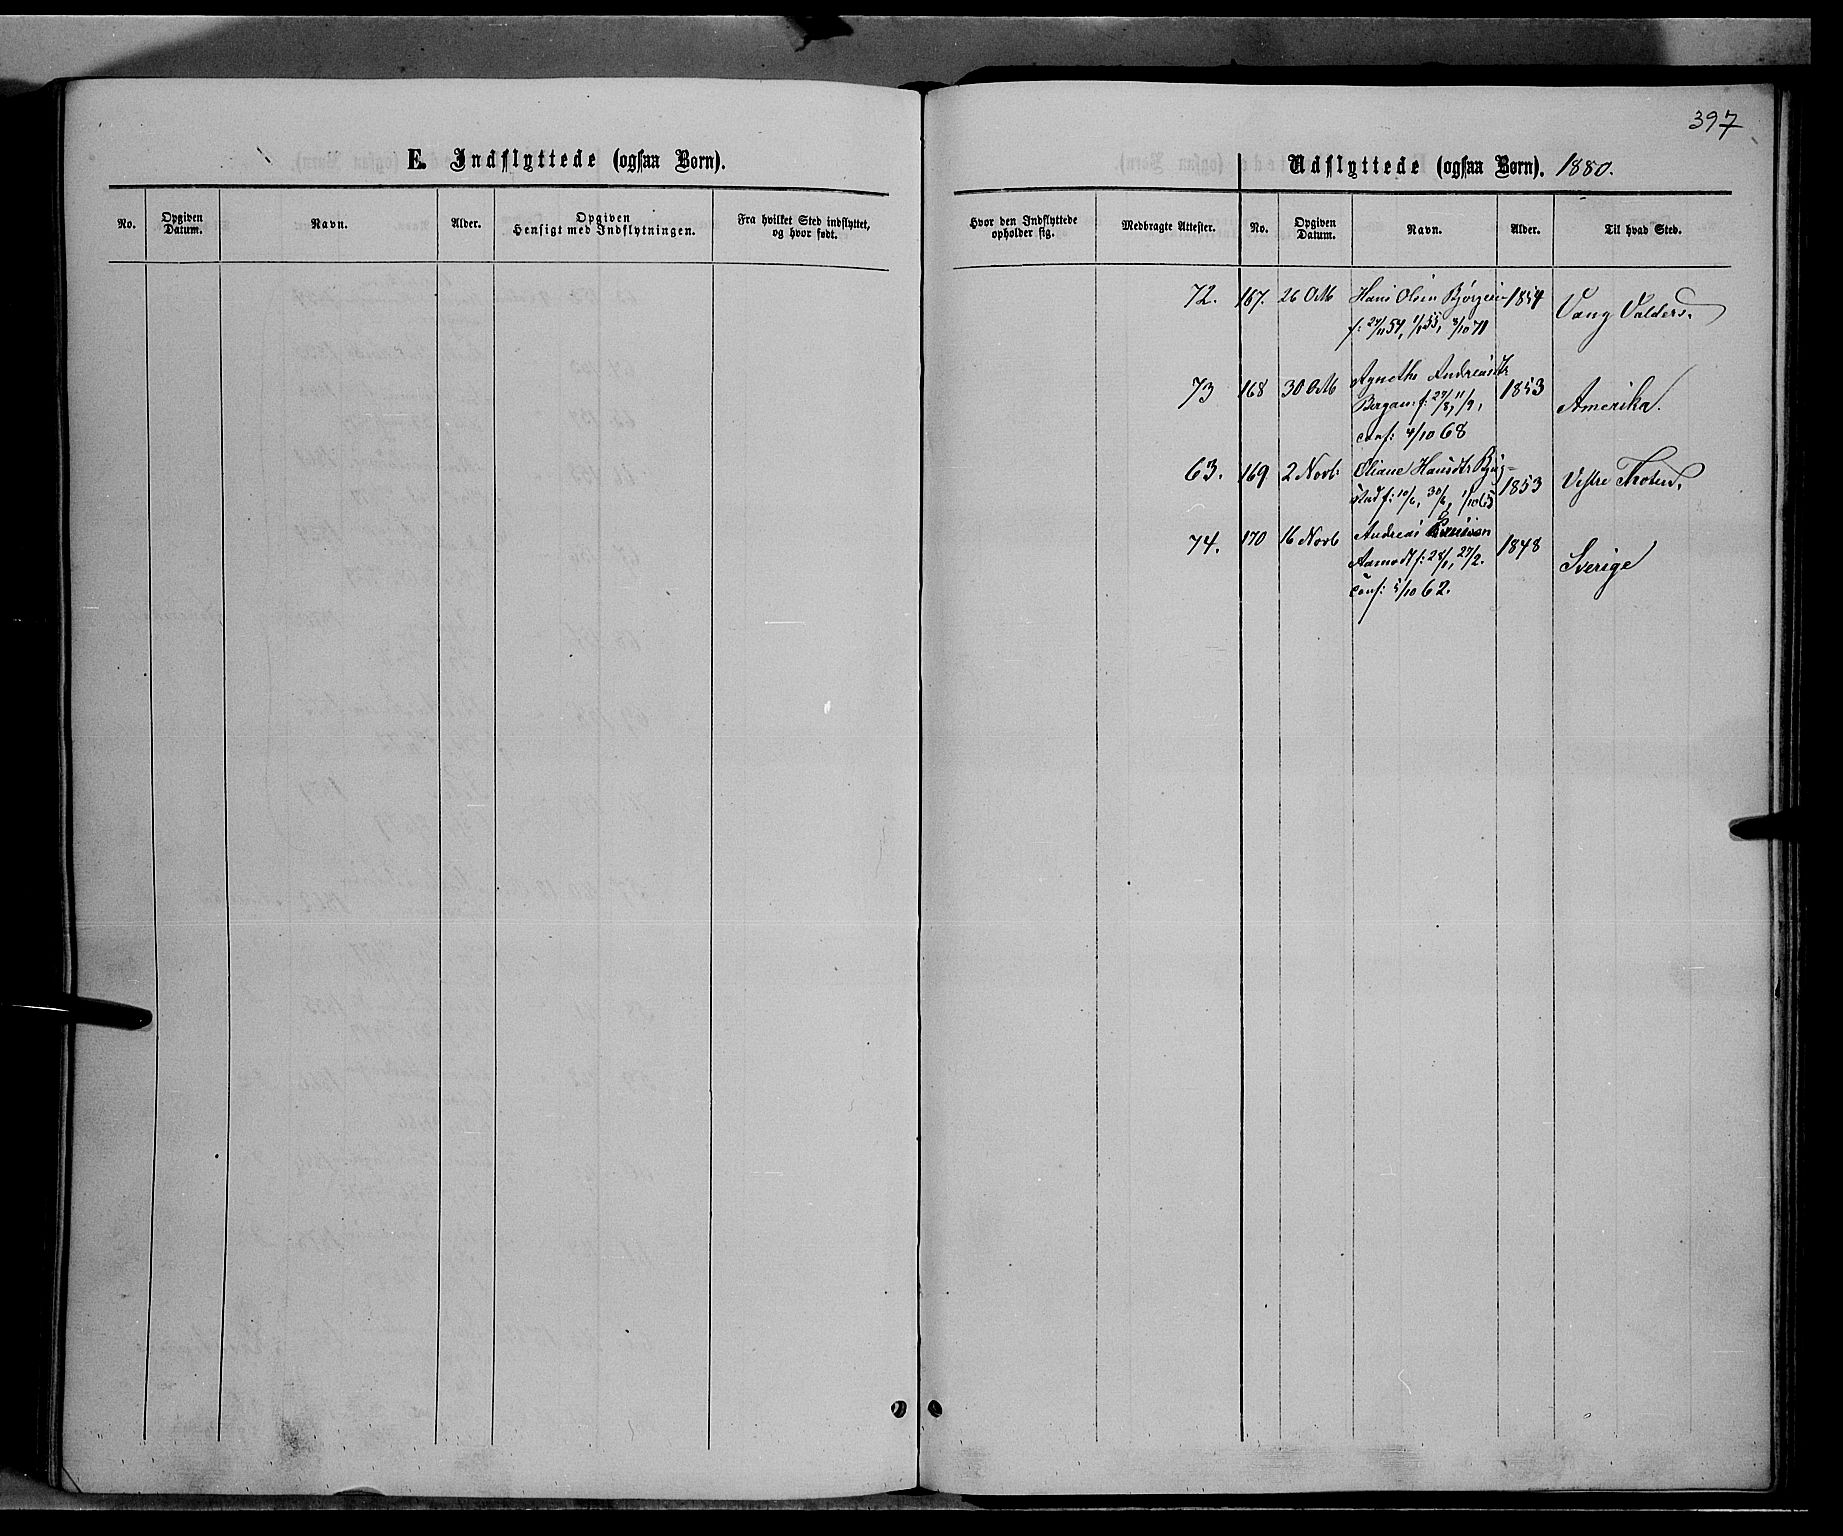 397
E. Indflyttede (ogsaa Børn).
Udflyttede (ogsaa Børn). 1880.
No.
Opgiven Datum.
Navn.
Alder.
Opgiven Hensigt med Indflytningen.
Fra hvilket Sted indflyttet, og hvor født.
Hvor den Indflyttede opholder sig.
Medbragte Attester.
No.
Opgiven Datum.
Navn.
Alder.
Til hvad Sted.
72. 167. 26 Octb Hans Olsen 1854 Vang Valders.
f: 27/11 54, 1/1 55, 8/10 71
73 168 30 Octb Agnethe Andreasdtr 1853 Amerika.
f: 27/8, 11/9,
conf: 4/10 68
63. 169 2 Novb: Oliane Hansdtr 1853 Vestre Thoten.
stad f: 10/6, 30/6, 1/10 65
74. 170 16 Novb Andreas 1848 Sverige
Aamodt f: 28/1, 27/2.
conf: 5/10 62.